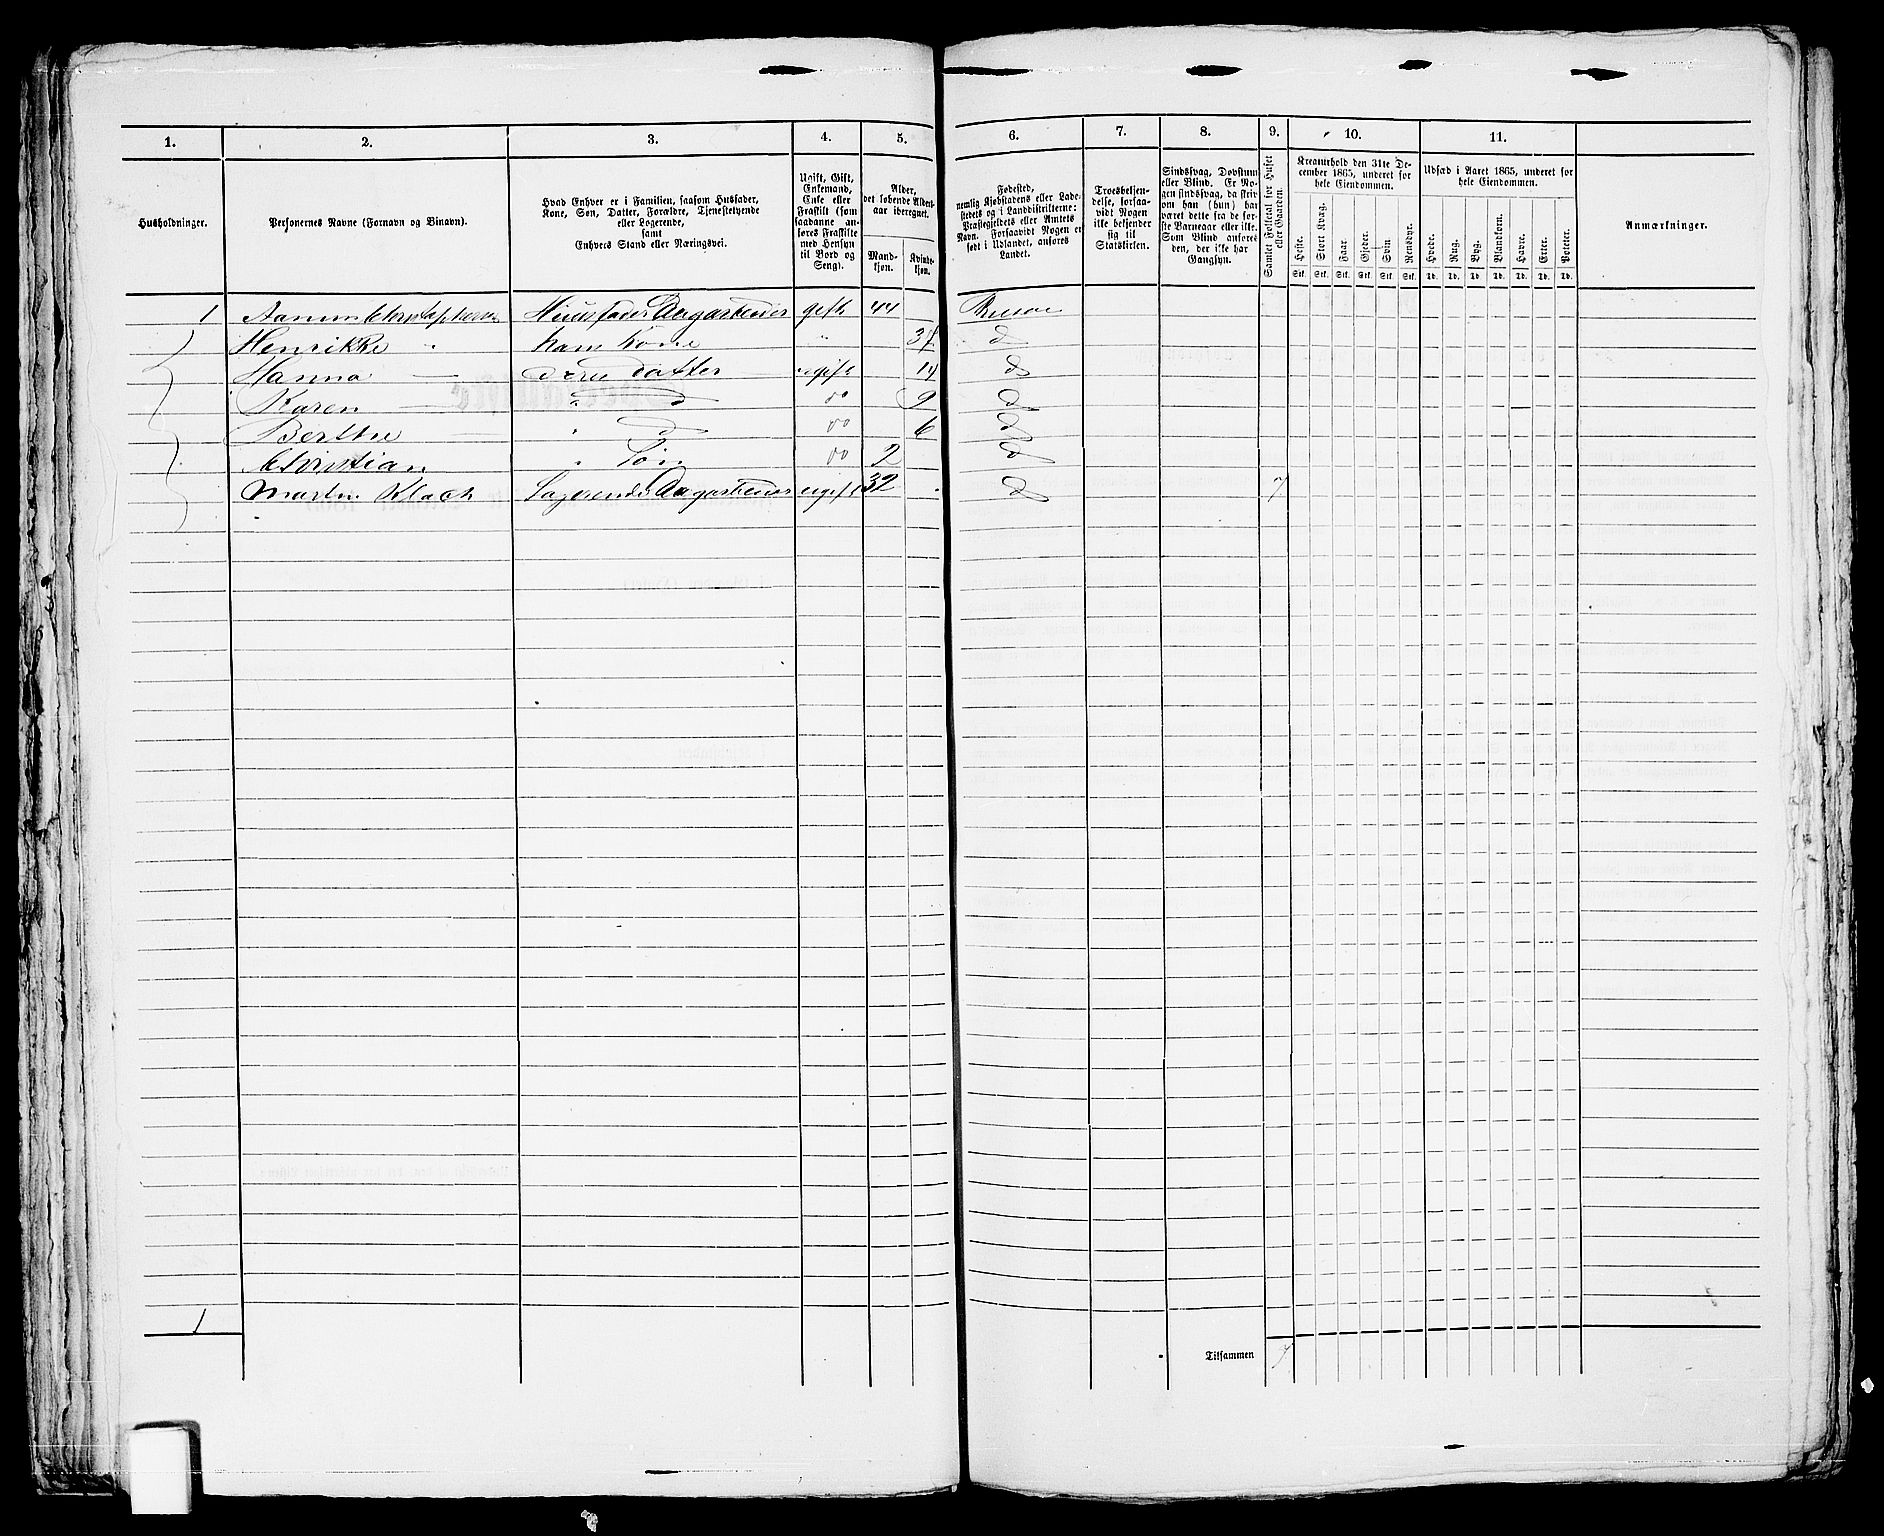 1.
2.
3.
4.
5.
6.
7.
8.
9.
10.
11.
Husholdninger.
Personernes Navne (Fornavn og Binavn).
Hvad Enhver er i Familien, saasom Husfader,
Kone, Søn, Datter, Forældre, Tjenestetyende
eller Logerende,
samt
Enhvers Stand eller Næringsvei.
Ugift, Gift,
Enkemand,
Enke eller
Fraskilt (som
saadanne an-
føres Fraskilte
med Hensyn
til Bord og
Seng).
Alder,
det løbende Alders-
aar iberegnet.
Mand-
kjøn.
Kvinde-
kjøn.
Fødested,
nemlig Kjøbstadens eller Lade-
stedets og i Landdistrikterne:
Præstegjeldets eller Amtets
Navn. Forsaavidt Nogen er
født i Udlandet, anføres
Landet.
Troesbekjen-
delse, forsaa-
vidt Nogen
ikke bekjender
sig til
Statskirken.
Sindssvag, Døvstum
eller Blind. Er No-
gen sindssvag, da skriv
om han (hun) har
været dette fra de før-
ste Barneaar eller ikke.
Som Blind anføres
den, der ikke har
Gangsyn.
Samlet Folketal for Huset
eller Gaarden.
Kreaturhold den 31te De-
cember 1865, underet for
hele Eiendommen.
Heste.
Stort Kvæg.
Faar.
Gjeder.
Svin.
Rensdyr.
Stk. Stk. Stk. Stk. Stk. Stk.
Udsæd i Aaret 1865, underet for
hele Eiendommen.
Hvede.
Rug.
Byg.
Blandkorn.
Havre.
Erter.
Poteter.
Td. Td. Td. Td. Td. Td. Td.
Anmærkninger.
1 Huusfader gift 44
Henrikke " hans Kone " 37 do
Hanna — deres datter ugift 14 do
Karen — " do do 9 do
Berthe — " do do 6 do
Christian " Søn do 2 do
Martin Logerende ugift 32 do 7
1
Tilsammen 7